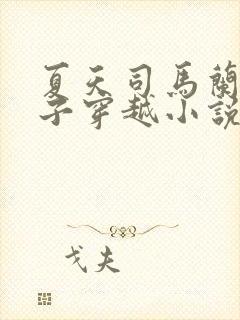 夏天司馬蘭
子穿越小說
戈夫